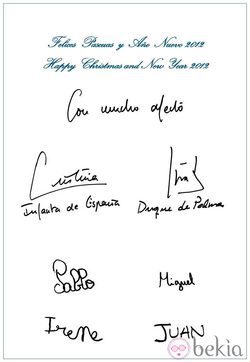 Felices Pascuas y Año Nuevo 2012
Happy Christmas and New Year 2012
Con mucho afecto
Cristina
Iñaki
Infanta de España
Duque de Palma
Pablo
Miguel
Irene
JUAN
bekia